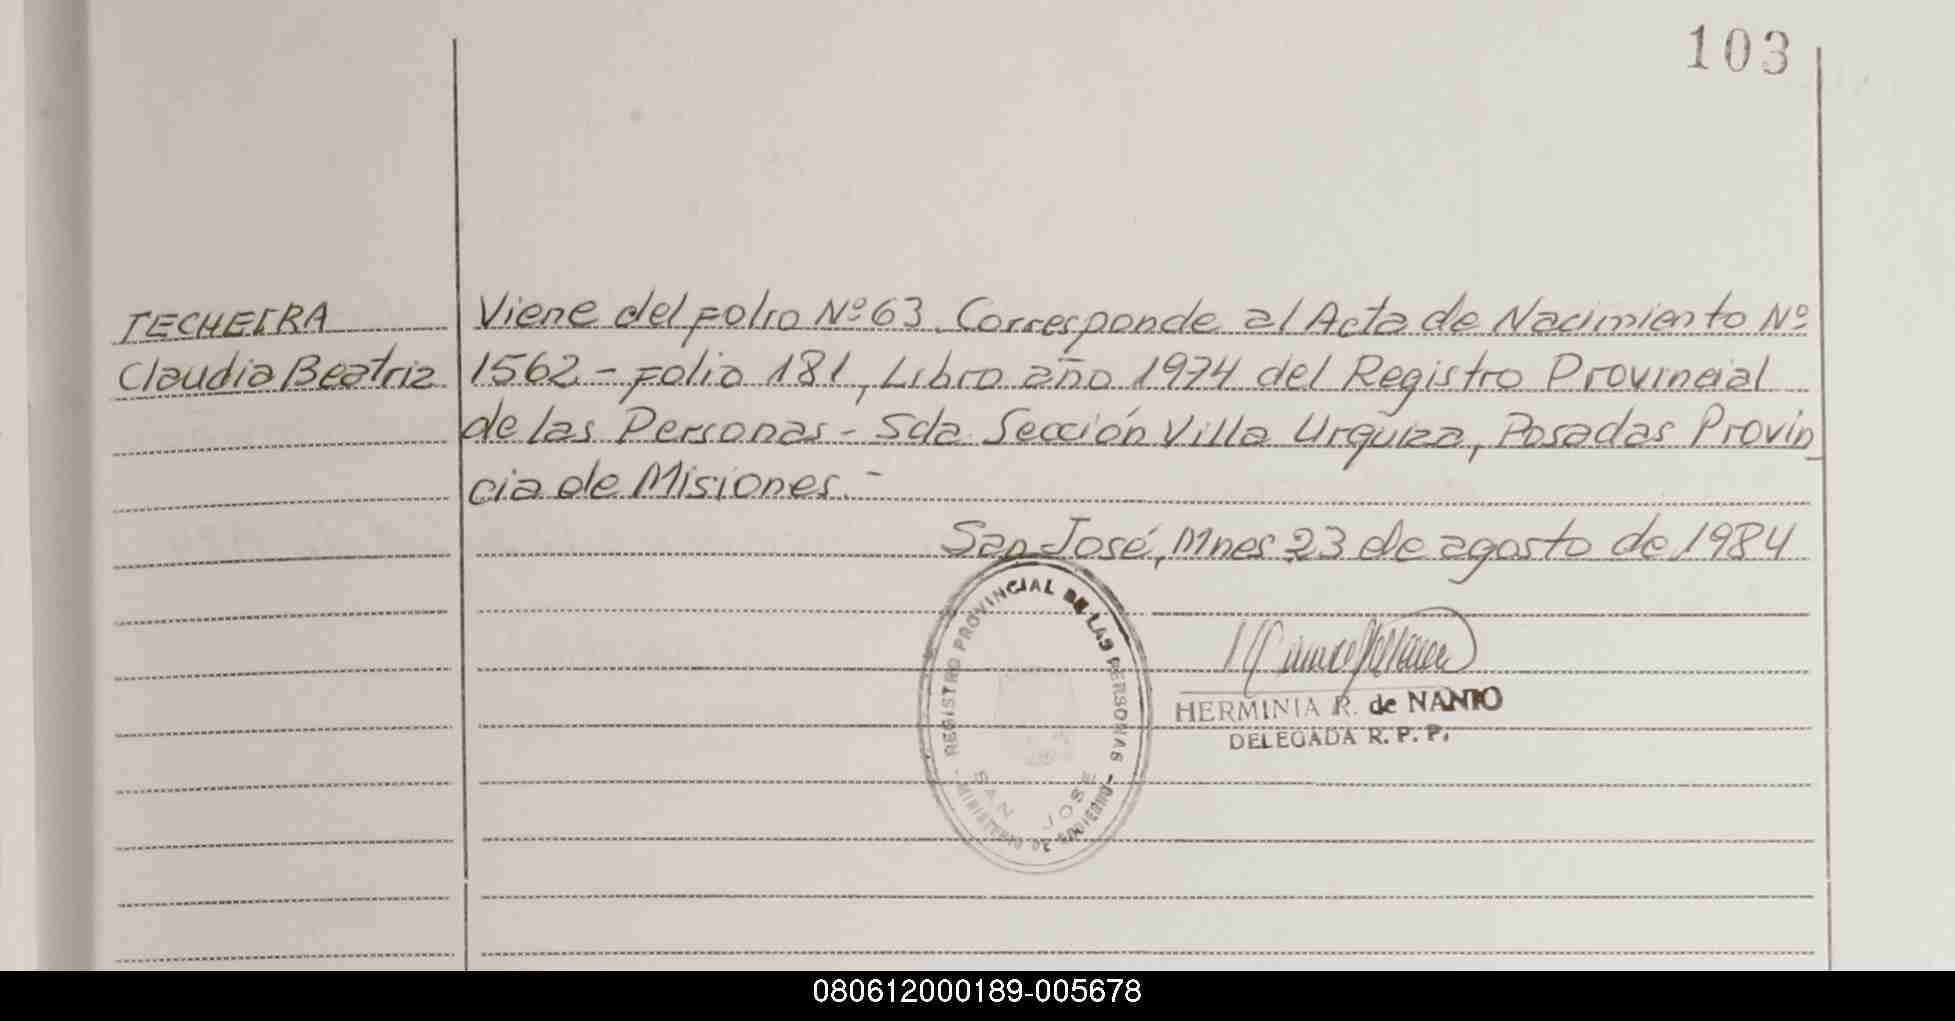 103
TECHEIRA
Claudia Beatriz
Viene del folio Nº 63. Corresponde al Acta de Nacimiento Nº
1562 - folio 181, Libro año 1974 del Registro Provincial
de las Personas - Sda Sección Villa Urquiza, Posadas Provin
cia de Misiones. -
San José, Mnes 23 de agosto de 1984
REGISTRO PROVINCIAL DE LAS PERSONAS
SAN JOSE
MINISTERIO DE GOBIERNO
HERMINIA R. de NANTO
DELEGADA R. P. P.
080612000189-005678